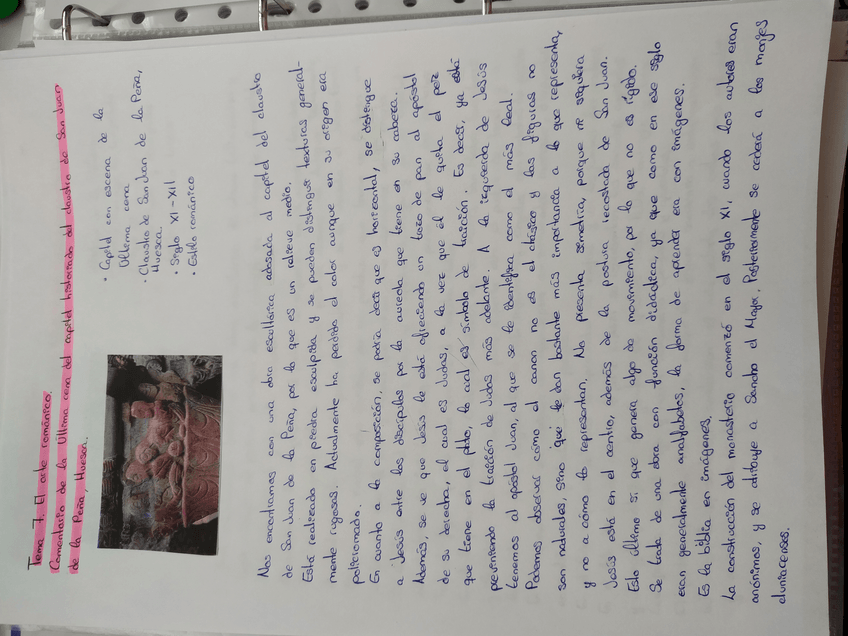 Tema 7. El arte románico
Comentario de la Última cena del capitel historiado del claustro de San Juan
de la Peña, Huesca.
• Capitel con escena de la
Última cena
• Claustro de San Juan de la Peña,
Huesca
• Siglo XI-XII
• Estilo románico
Nos encontramos con una obra escultórica adosada al capitel del claustro
de San Juan de la Peña, por lo que es un relieve medio.
Está realizado en piedra esculpida y se pueden distinguir texturas general-
mente rugosas. Actualmente ha perdido el color aunque en su origen era
policromado.
En cuanto a la composición, se podría decir que es horizontal, se distingue
a Jesús entre los discípulos por la aureola que tiene en su cabeza.
Además, se ve que Jesús le está ofreciendo un trozo de pan al apóstol
de su derecha, el cual es Judas, a la vez que él le quita el pez
que tiene en el plato, lo cual es símbolo de traición. Es decir, ya está
previniendo la traición de Judas más adelante. A la izquierda de Jesús
tenemos al apóstol Juan, al que se le identifica como el más leal.
Podemos observar cómo el canon no es el clásico y las figuras no
son naturales, sino que le dan bastante más importancia a lo que representa,
y no a cómo lo representan. No presenta simetría, porque ni siquiera
Jesús está en el centro, además de la postura recostada de San Juan.
Esto último si que genera algo de movimiento, por lo que no es rígido.
Se trata de una obra con función didáctica, ya que como en ese siglo
eran generalmente analfabetos, la forma de aprender era con imágenes.
Es la biblia en imágenes.
La construcción del monasterio comenzó en el siglo XI, cuando los autores eran
anónimos, y se atribuye a Sancho el Mayor. Posteriormente se cederá a los monjes
cluniacenses.